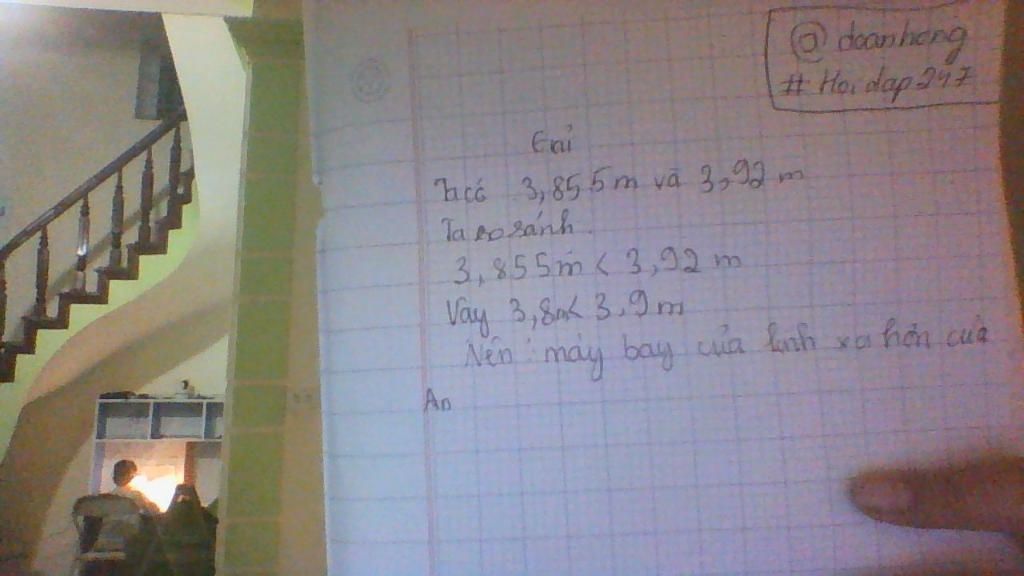 @ doanhong
# Hoidap247
Giải
Ta có 3,855m và 3,92 m
Ta so sánh.
3,855m < 3,92 m
Vậy 3,8m < 3,9 m
Nên : máy bay của linh xa hơn của
An